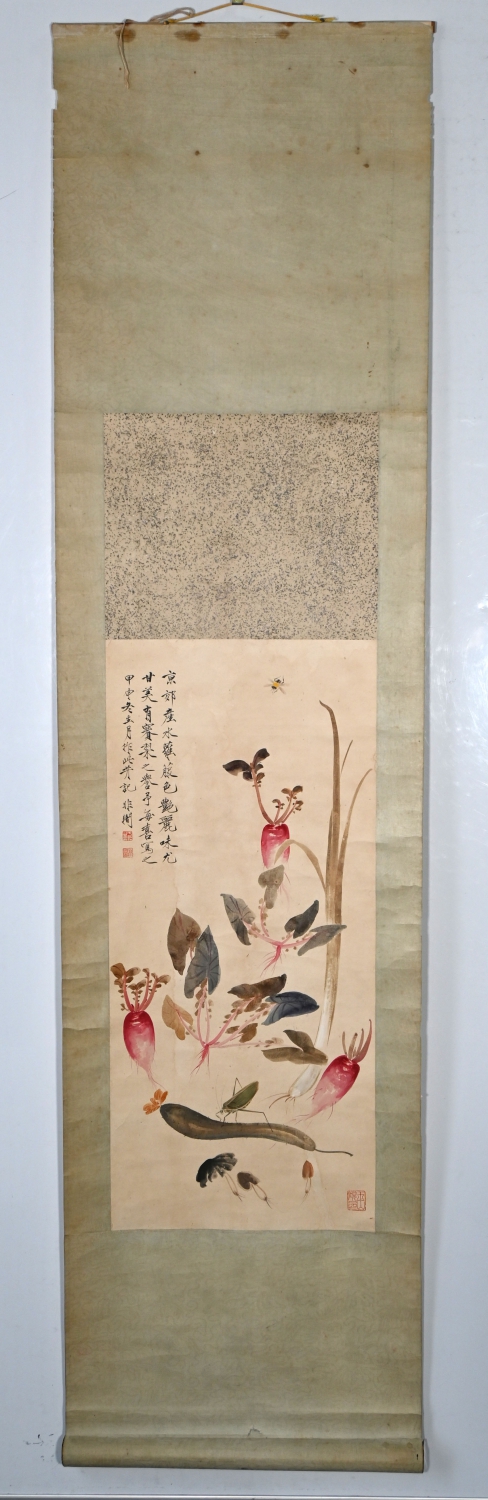 京郊產水蘿蔔色艷麗味尤
甘美有賽梨之譽予每喜寫之
甲申冬十月作此并記 非闇